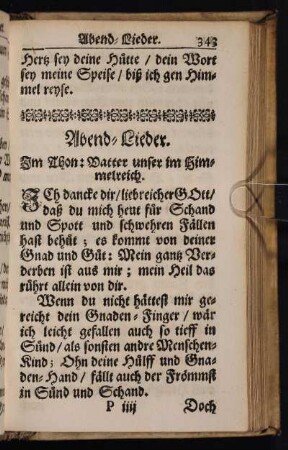 Abend-Lieder. 343
Hertz sey deine Hütte / dein Wort
sey meine Speise / biß ich gen Him-
mel reyse.
Abend-Lieder.
Im Thon: Vatter unser im Him-
melreich.
ICh dancke dir / liebreicher GOtt /
daß du mich heut für Schand
und Spott und schwehren Fällen
hast behüt; es kommt von deiner
Gnad und Güt: Mein gantz Ver-
derben ist aus mir; mein Heil das
rührt allein von dir.
Wenn du nicht hättest mir ge-
reicht dein Gnaden-Finger / wär
ich leicht gefallen auch so tieff in
Sünd / als sonsten andre Menschen-
Kind; Ohn deine Hülff und Gna-
den-Hand / fällt auch der Frömmst
in Sünd und Schand.
P iiij Doch